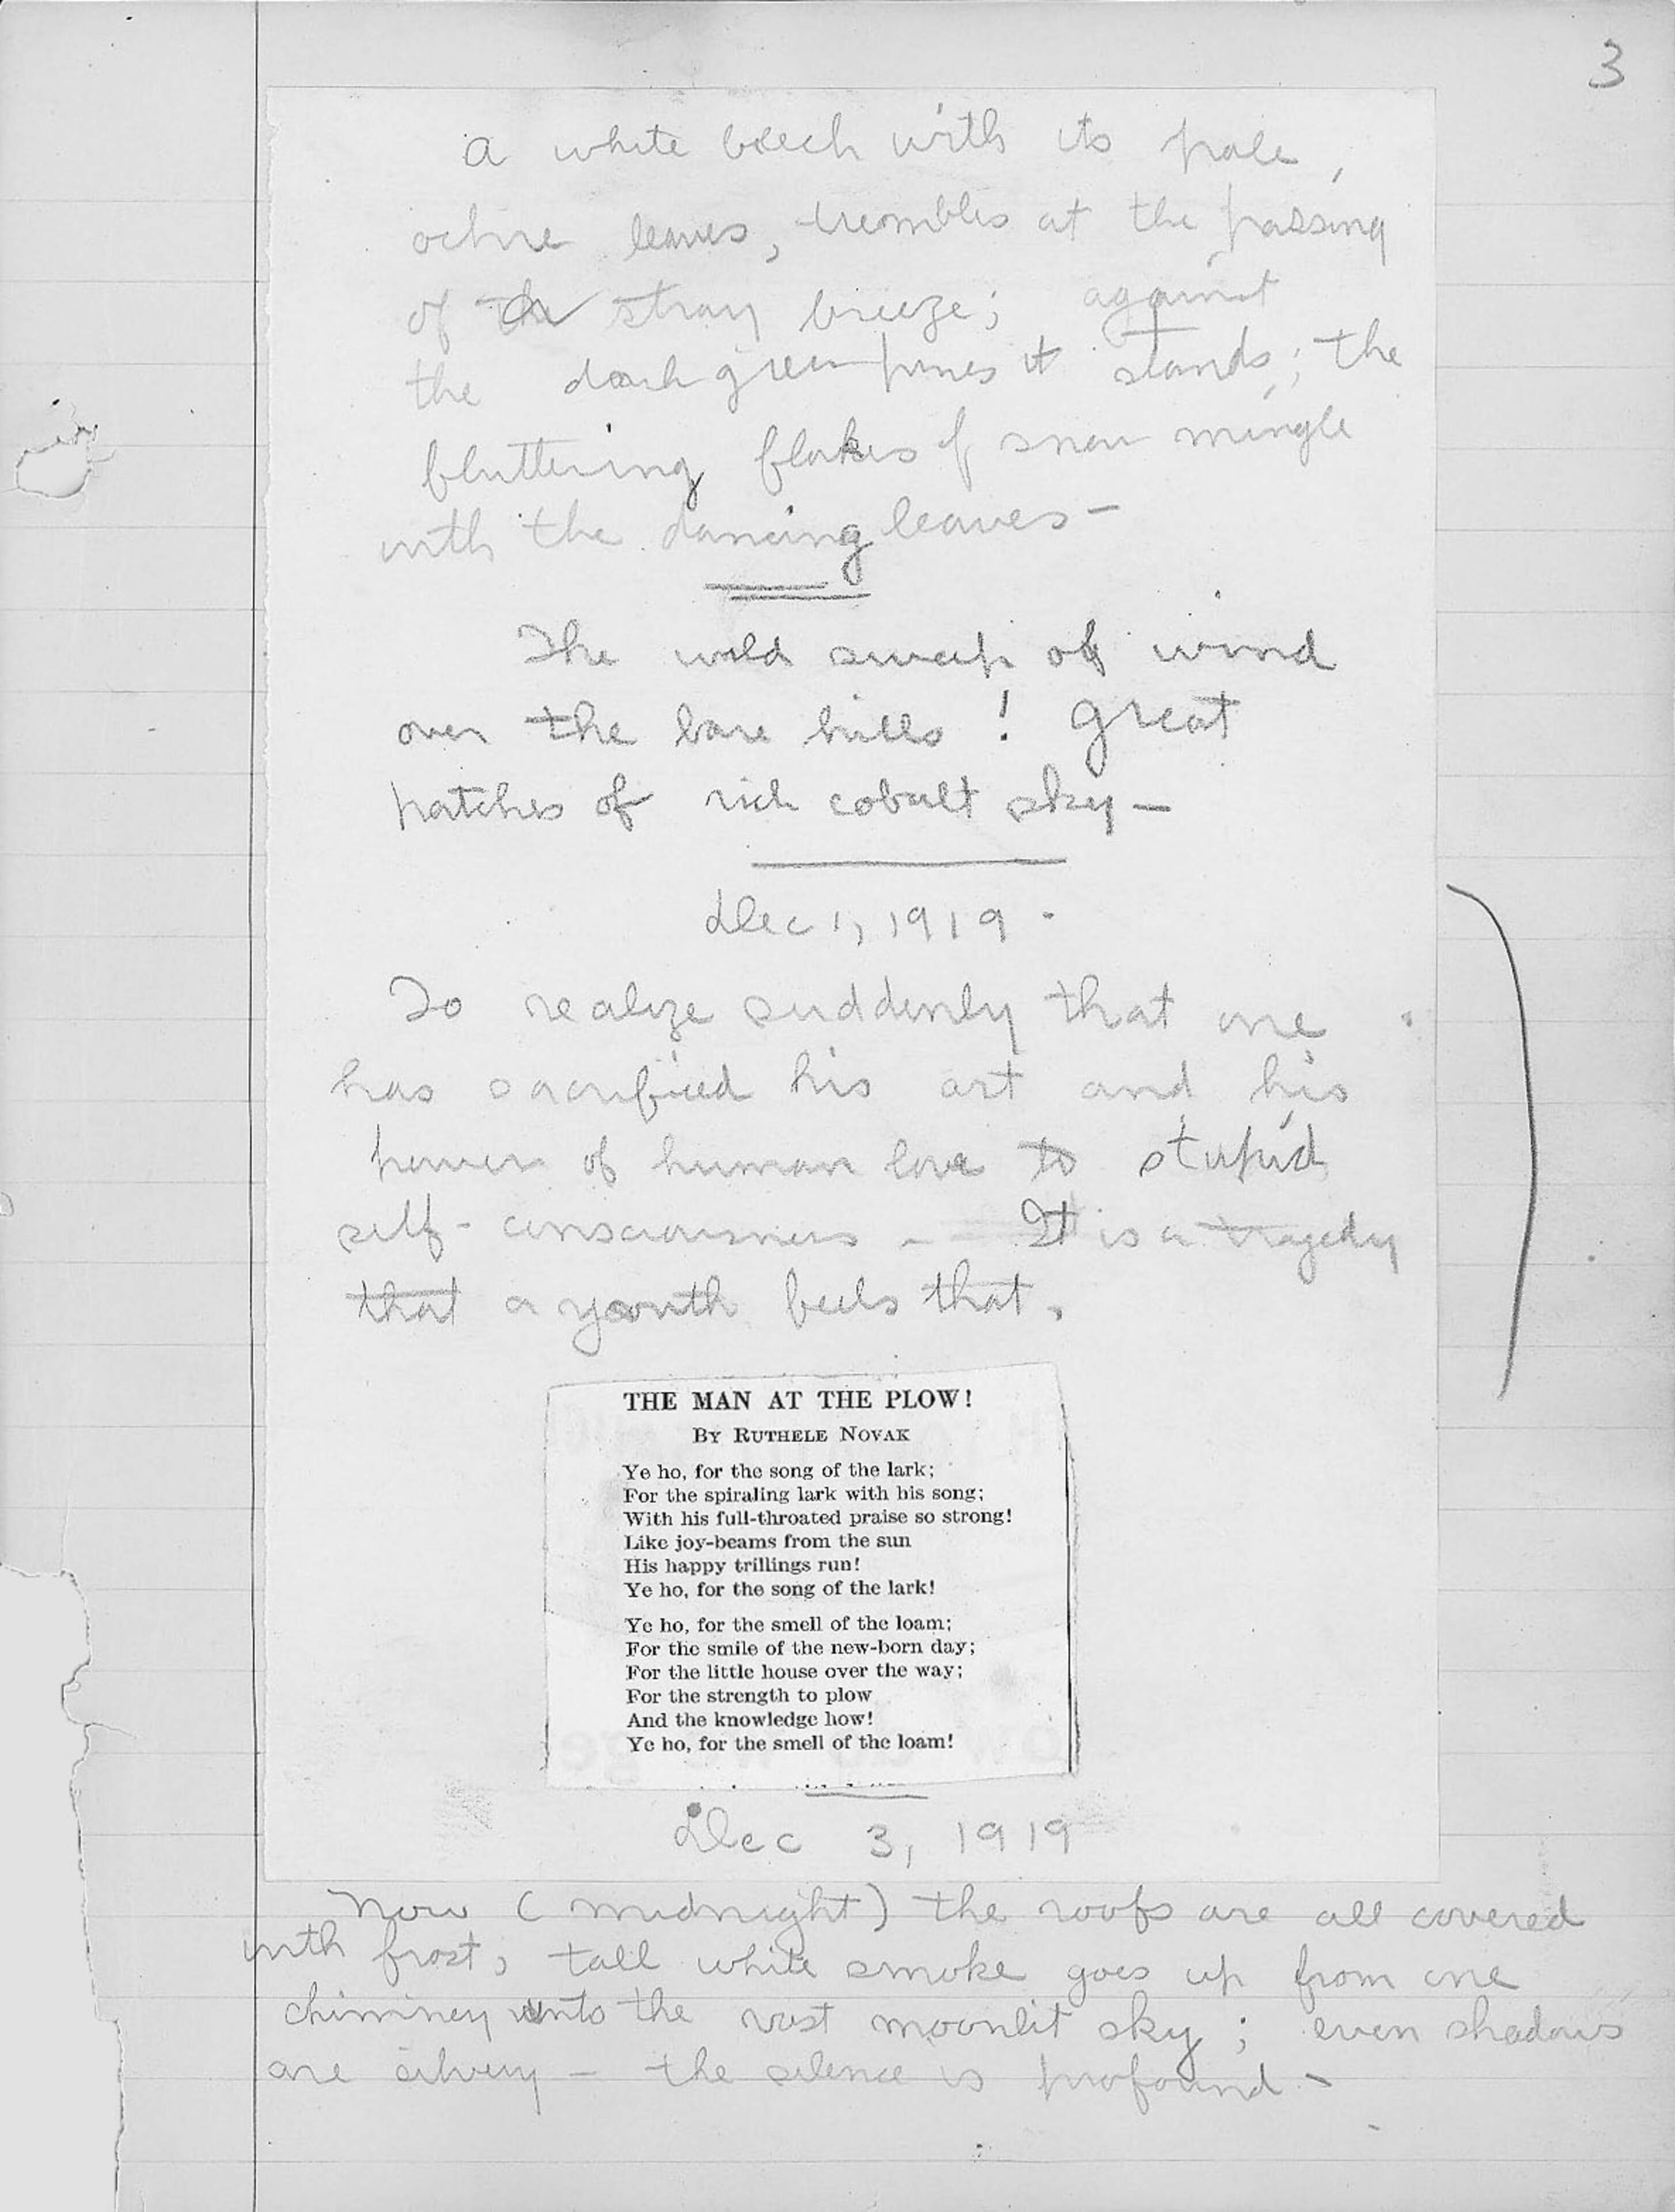 3
A white beech with its pale,
ochre leaves, trembles at the passing
of a stray breeze; against
the dark green pines it stands; the
fluttering flakes of snow mingle
with the dancing leaves —
The wild sweep of wind
over the bare hills! Great
patches of rich cobalt sky —
Dec 1, 1919.
To realize suddenly that one
has sacrificed his art and his
power of human love to stupid
self-consciousness — It is a tragedy
that a youth feels that.
THE MAN AT THE PLOW!
BY RUTHELE NOVAK
Ye ho, for the song of the lark;
For the spiraling lark with his song;
With his full-throated praise so strong!
Like joy-beams from the sun
His happy trillings run!
Ye ho, for the song of the lark!
Ye ho, for the smell of the loam;
For the smile of the new-born day;
For the little house over the way;
For the strength to plow
And the knowledge how!
Ye ho, for the smell of the loam!
Dec 3, 1919
Now (midnight) the roofs are all covered
with frost, tall white smoke goes up from one
chimney into the vast moonlit sky; even shadows
are silvery — the silence is profound —